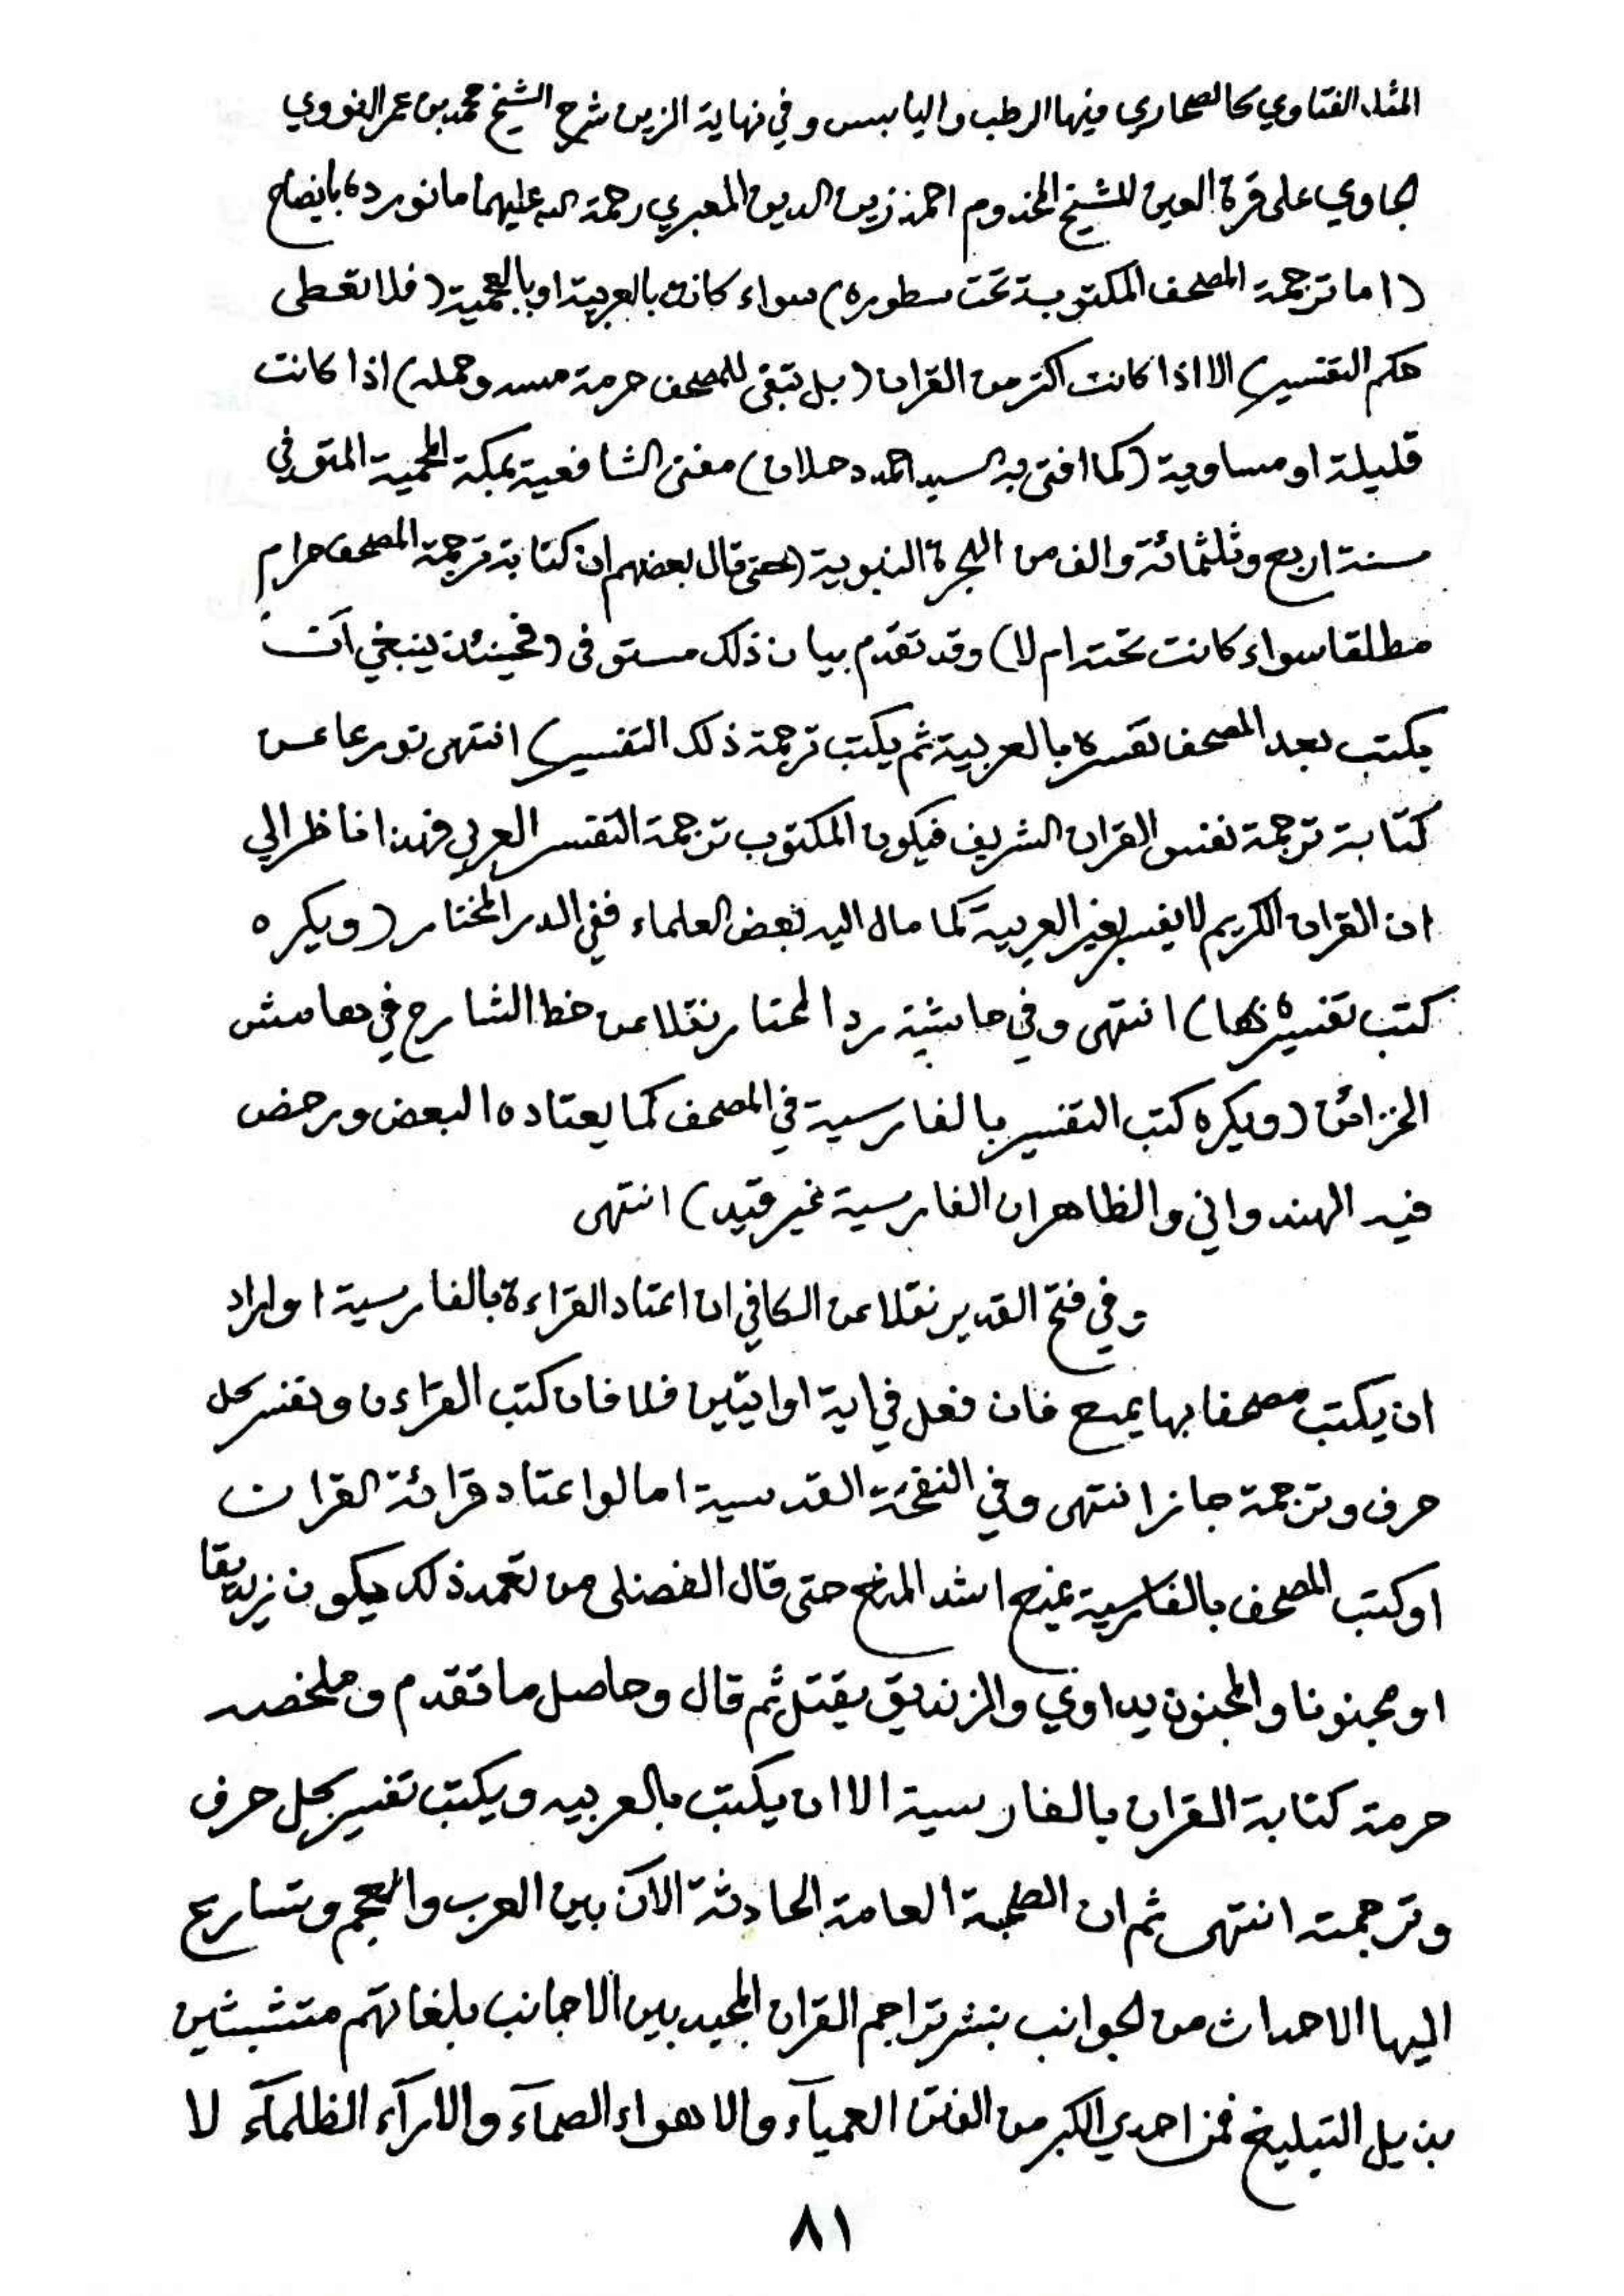 المثل الفتاوي كالصحاري فيها الرطب واليابس وفي نهاية الزين شرح الشيخ محمد بن عمر النووي
الجاوي على قرة العين للشيخ المخدوم احمد زين الدين المعبري رحمة الله عليهما ما نورده بايضاح
(اما ترجمة المصحف المكتوبة تحت سطوره) سواء كانت بالعربية او بالعجمية (فلا تعطى
حكم التفسير) الا اذا كانت اكثر من القران (بل تبقى للمصحف حرمة مسه وحمله) اذا كانت
قليلة او مساوية (كما افتى به السيد احمد دحلان) مفتى الشافعية بمكة المحمية المتوفي
سنة اربع وثلثمائة والف من الهجرة النبوية (حتى قال بعضهم ان كتابة ترجمة المصحف حرام
مطلقا سواء كانت تحته ام لا) وقد تقدم بيان ذلك مستوفى (فحينئذ ينبغي ان
يكتب بعد المصحف تفسره بالعربية ثم يكتب ترجمة ذلك التفسير) انتهى تورعا عن
كتابة ترجمة نفس القران الشريف فيكون المكتوب ترجمة التفسر العربي فهذا ناظر الي
ان القران الكريم لا يفسر بغير العربية كما مال اليه بعض العلماء ففي الدر المختار (ويكره
كتب تفسيره بها) انتهى وفي حاشية رد المحتار نقلا عن خط الشارح في هامش
الخزائن (ويكره كتب التفسير بالفارسية في المصحف كما يعتاده البعض ورخص
فيه الهندواني والظاهر ان الفارسية غير قيد) انتهى
وفي فتح القدير نقلا عن الكافي ان اعتاد القراءة بالفارسية او اراد
ان يكتب مصحفا بها يمنع فان فعل في اية او ايتين فلا فان كتب القراءن وتفسر كل
حرف وترجمة جاز انتهى وفي النفحة القدسية اما لو اعتاد قرائة القران
او كتب المصحف بالفارسية يمنع اشد المنع حتى قال الفضلى من تعمد ذلك يكون زنديقا
او مجنونا والمجنون يداوي والزنديق يقتل ثم قال وحاصل ما تقدم وملخصه
حرمة كتابة القران بالفارسية الا ان يكتب بالعربيه ويكتب تفسير كل حرف
وترجمته انتهى ثم ان الطمة العامة الحادثة الآن بين العرب والعجم وتسارع
اليها الاحداث من لجوانب بنشر تراجم القران المجيد بين الاجانب بلغاتهم متشبثين
بذيل التبليغ فمن احدي الكبر من الفتن العمياء والاهواء الصماء والاراء الظلماء لا
٨١